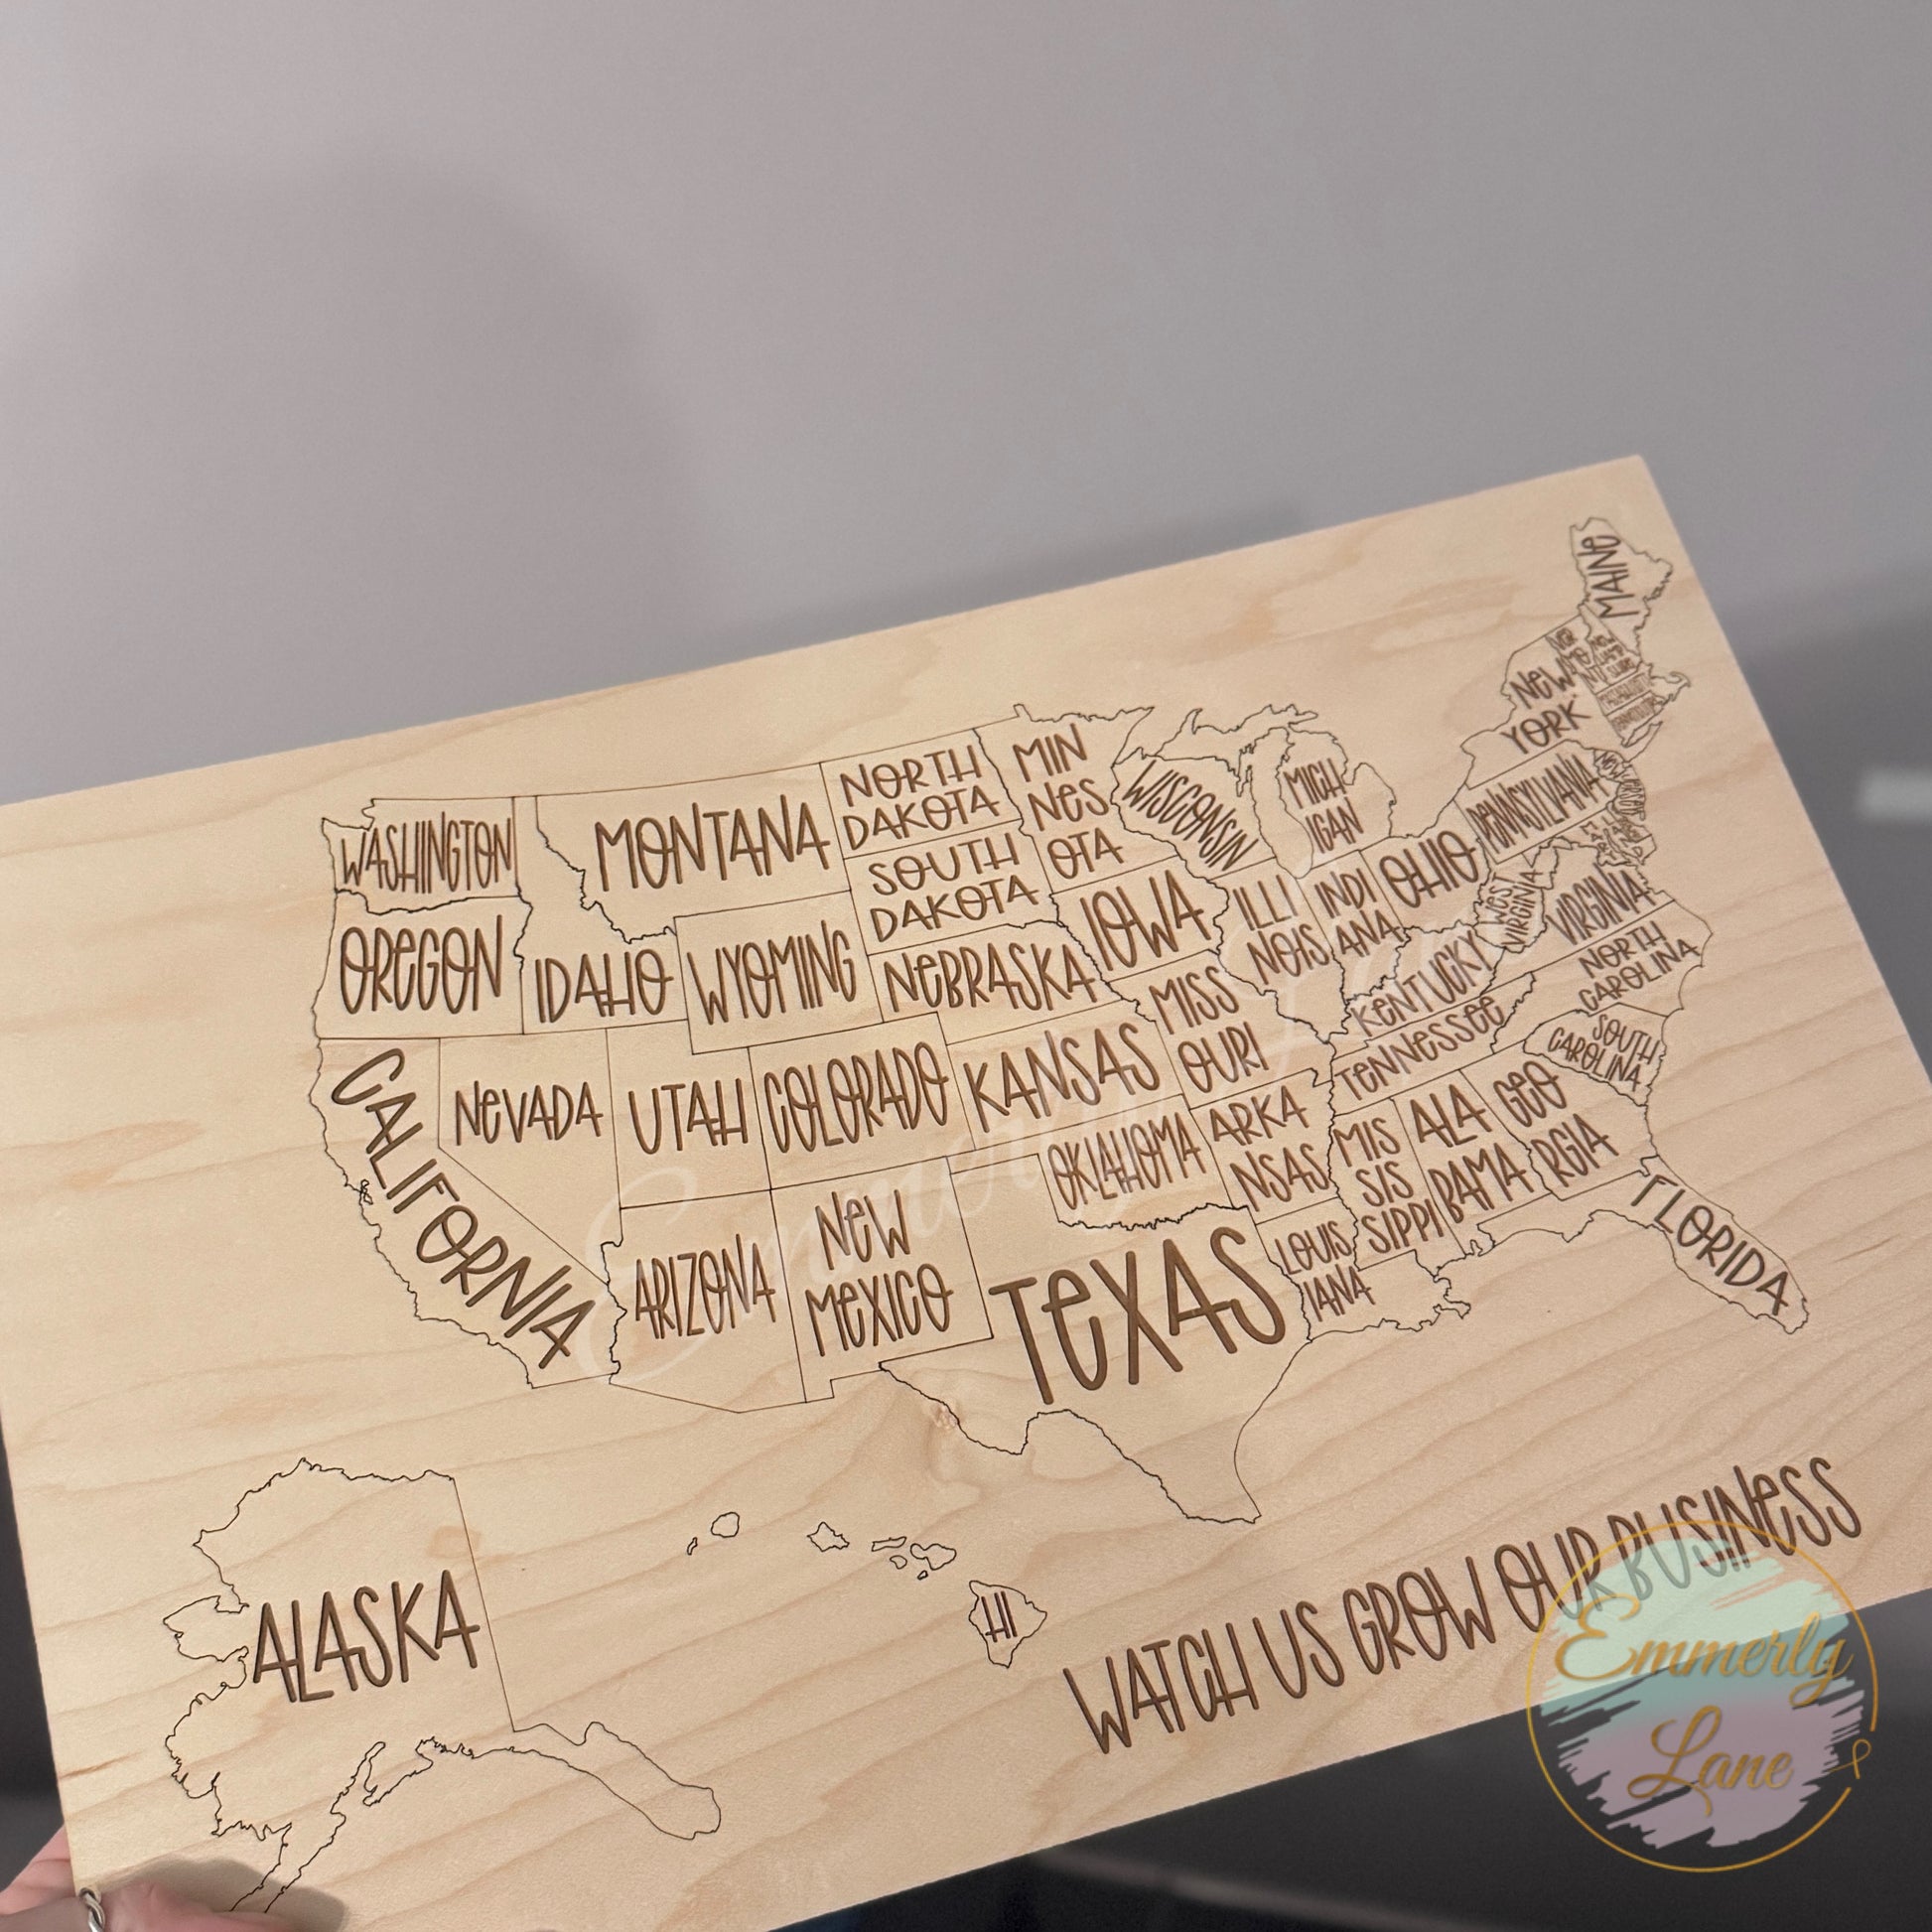 MAINE
VER
MO
NT
NEW
HAMP
SHIRE
NEW
YORK
WASHINGTON
MONTANA
NORTH
DAKOTA
MIN
NES
OTA
WISCONSIN
MICH
IGAN
PENNSYLVANIA
OREGON
IDAHO
WYOMING
SOUTH
DAKOTA
IOWA
ILLI
NOIS
INDI
ANA
OHIO
WEST
VIRGINIA
VIRGINIA
NEBRASKA
MISS
OURI
KENTUCKY
NORTH
CAROLINA
CALIFORNIA
NEVADA
UTAH
COLORADO
KANSAS
TENNESSEE
SOUTH
CAROLINA
ARIZONA
NEW
MEXICO
OKLAHOMA
ARKA
NSAS
MIS
SIS
SIPPI
ALA
BAMA
GEO
RGIA
TEXAS
LOUIS
IANA
FLORIDA
ALASKA
HI
WATCH US GROW OUR BUSINESS
Emmerly
Lane
Emmerly Lane